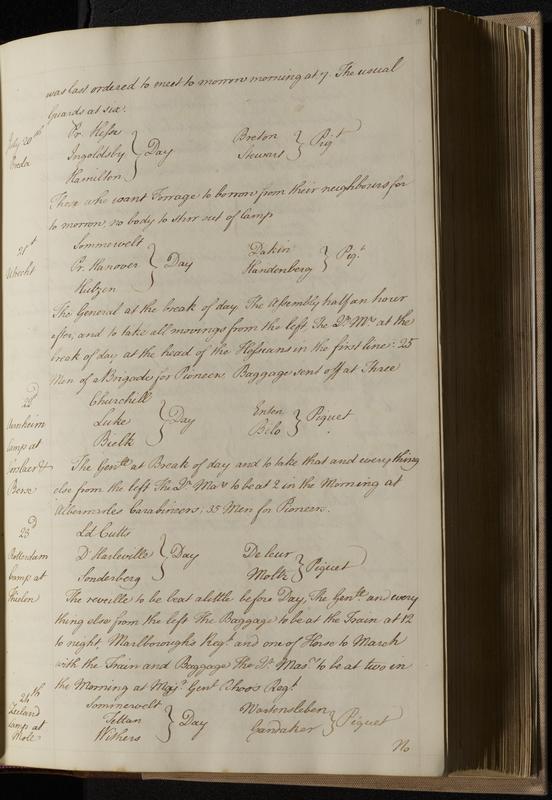 was last ordered to meet to morrow morning at 7. The usual
Guards at six.
July 20th Pr. Hesse
Breda Ingoldsby } Day Breton
Hamilton Stewart } Piqt
Those who want Forrage to borrow from their neighbours for
to morrow, no body to stirr out of Camp
21st Sommervelt
Utrecht Pr. Hanover } Day Dakin
Hulzen Handenberg } Piqt
The General at the break of day. The Assembly half an hour
after, and to take all movings from the left. The Qr. Mrs at the
break of day at the head of the Hessians in the first line: 25
Men of a Brigade for Pioneers Baggage sent off at Three
22d Churchill
Arnheim Luke } Day Erten
Camp at Bielk Bilo } Piquet
The Genll at Break of day and to take that and every thing
Bense else from the left The Qr. Mars to be at 2 in the Morning at
Albermarles Carabineers, 35 Men for Pioneers.
23d Ld Cutts
Rotterdam D'Harleville } Day Deleur
Camp at Sonderberg Moltz } Piquet
Thielen The reveille to be beat a little before Day, The Genll and every
thing else from the left The Baggage to be at the Train at 12
to night. Marlboroughs Regt and one of Horse to March
with the Train and Baggage The Qr. Masrs to be at two in
the Morning at Majr. Genl Shoos Regt
24th Sommervelt
Zeeland Tettan } Day Wartensleben
Camp at Withers Gandaker } Piquet
Moll
No